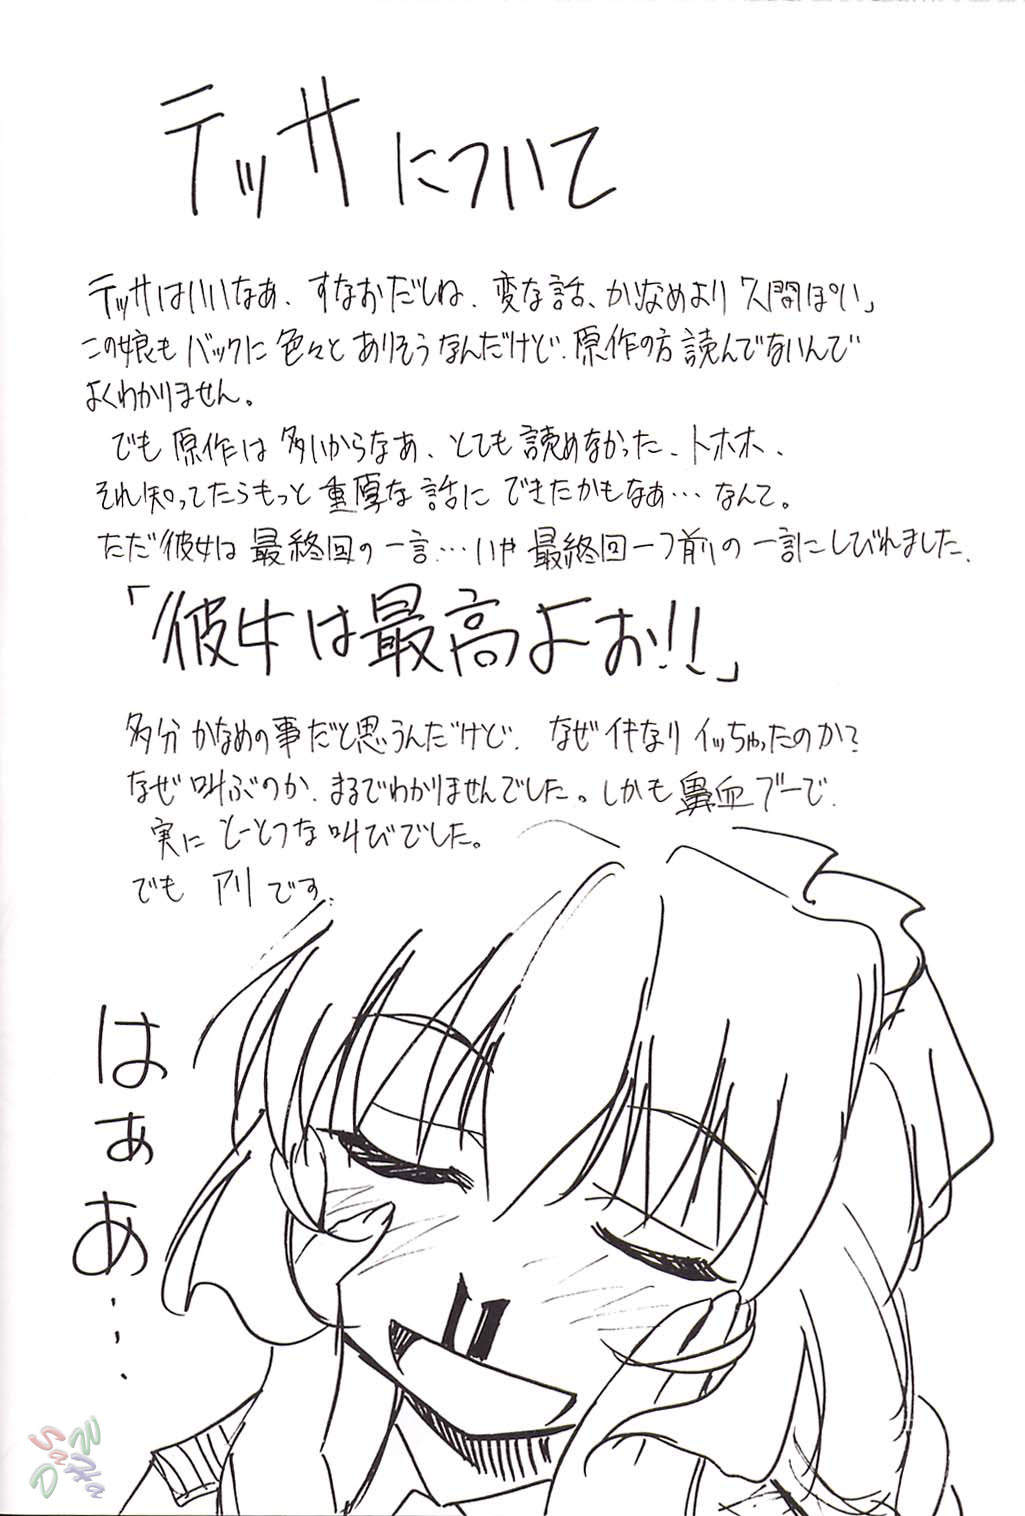 テッサについて
テッサはいいなあ、すなおだしね、変な話、かなめより「人間ぽい」
この娘もバックに色々とありそうなんだけど、原作の方読んでないんで
よくわかりません。
でも原作は多いからなあ、とても読めなかった、トホホ、
それ知ってたらもっと重厚な話にできたかもなぁ…なんて。
ただ彼女は最終回の一言…いや最終回一つ前の一言にしびれました、
「彼女は最高よお!!」
多分かなめの事だと思うんだけど、なぜイキなりイッちゃったのか?
なぜ叫ぶのか、まるでわかりませんでした。しかも鼻血ブーで、
実にとーとつな叫びでした。
でもアリです、
はぁあ…